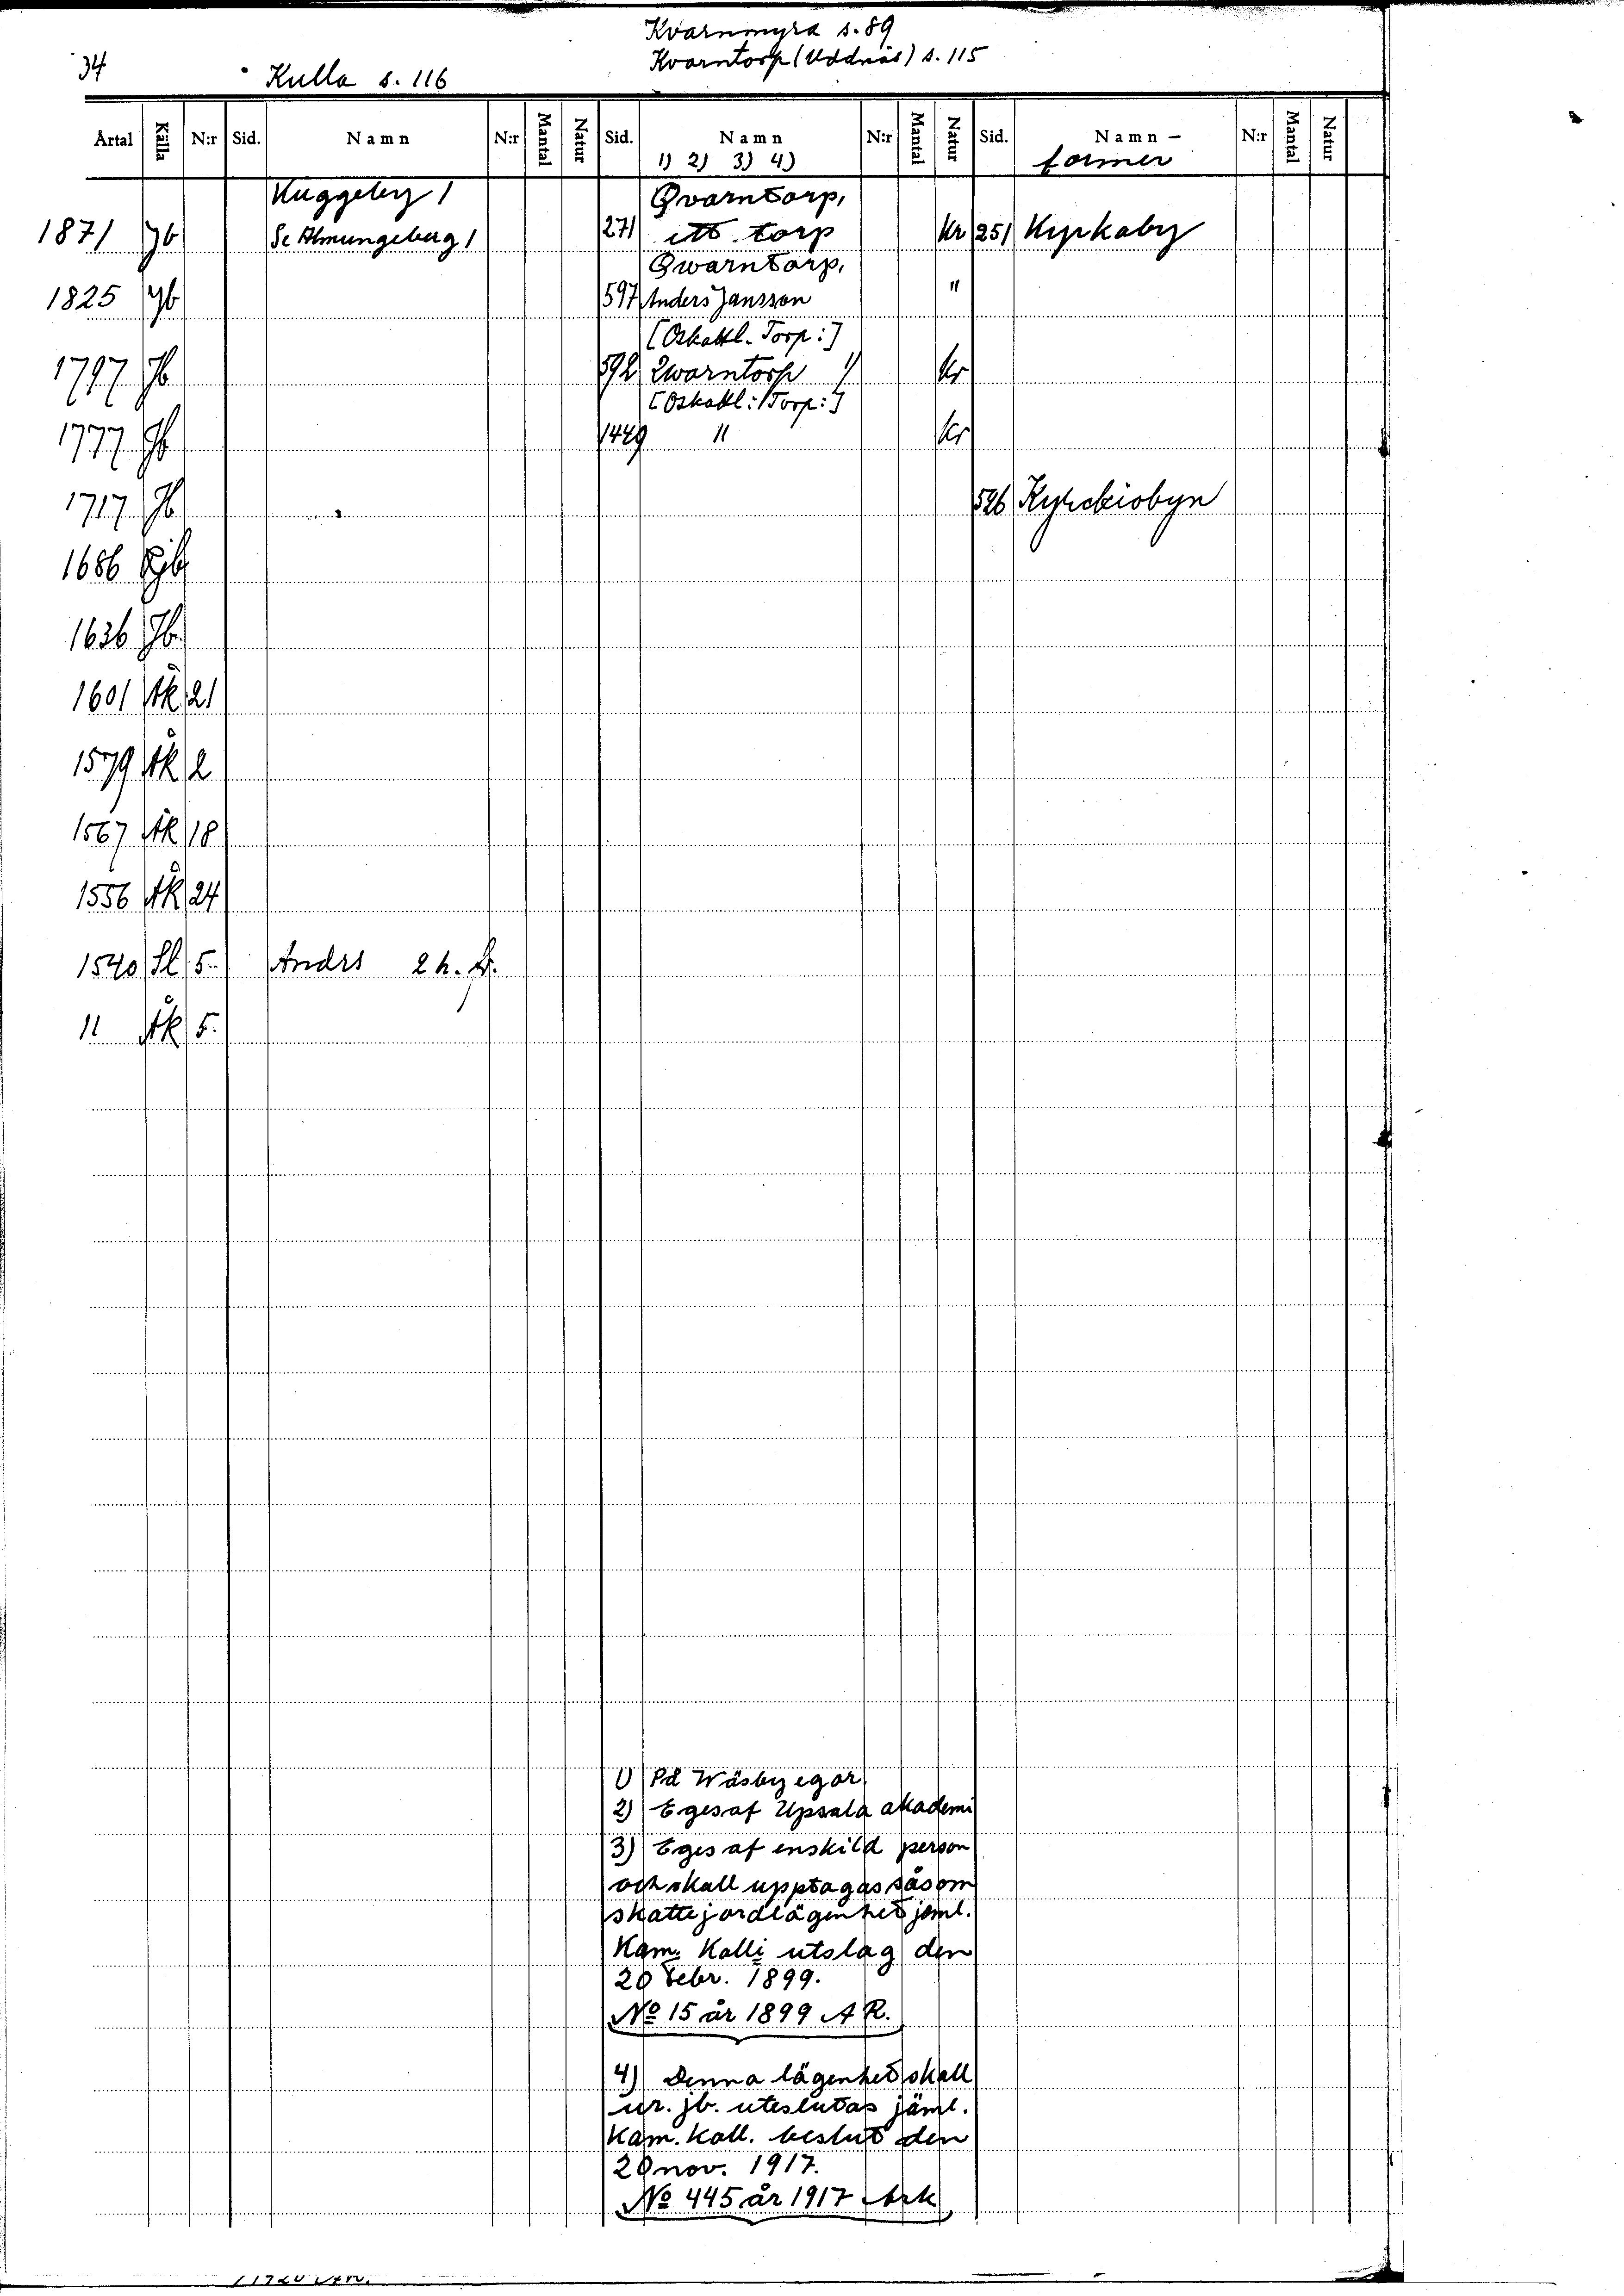 Kvarnmyra s. 89
34 Kulla s. 116 Kvarntorp (Uddnäs) s. 115
Årtal Källa N:r Sid. Namn N:r Mantal Natur Sid. Namn N:r Mantal Natur Sid. Namn - N:r Mantal Natur
1) 2) 3) 4) former
Kuggeby 1 Qvarntorp,
1871 Jb Se Almungeberg 1 271 ett torp Kr 251 Kyrkaby
Qwarntorp,
1825 Jb 597 Anders Jansson "
[Oskattl. Torp:]
1797 Jb 592 Qwarntorp 1 Kr
[Oskattl: Torp:]
1777 Jb 1449 " Kr
1717 Jb 526 Kyrckiobyn
1686 Rjb
1636 Jb
1601 Åk 21
1579 Åk 2
1567 Åk 18
1556 Åk 24
1540 Sl 5 Andrs 2 h.
" Åk 5
1) På Wäsby egor
2) Eges af Upsala akademi
3) Eges af enskild person
och skall upptagas såsom
skattejordlägenhet jäml.
Kam. Kolli utslag den
20 febr. 1899.
No 15 år 1899 A R.
4) Denna lägenhet skall
ur. jb. uteslutas jäml.
Kam. Koll. beslut den
20 nov. 1917.
No 445 år 1917 Ark